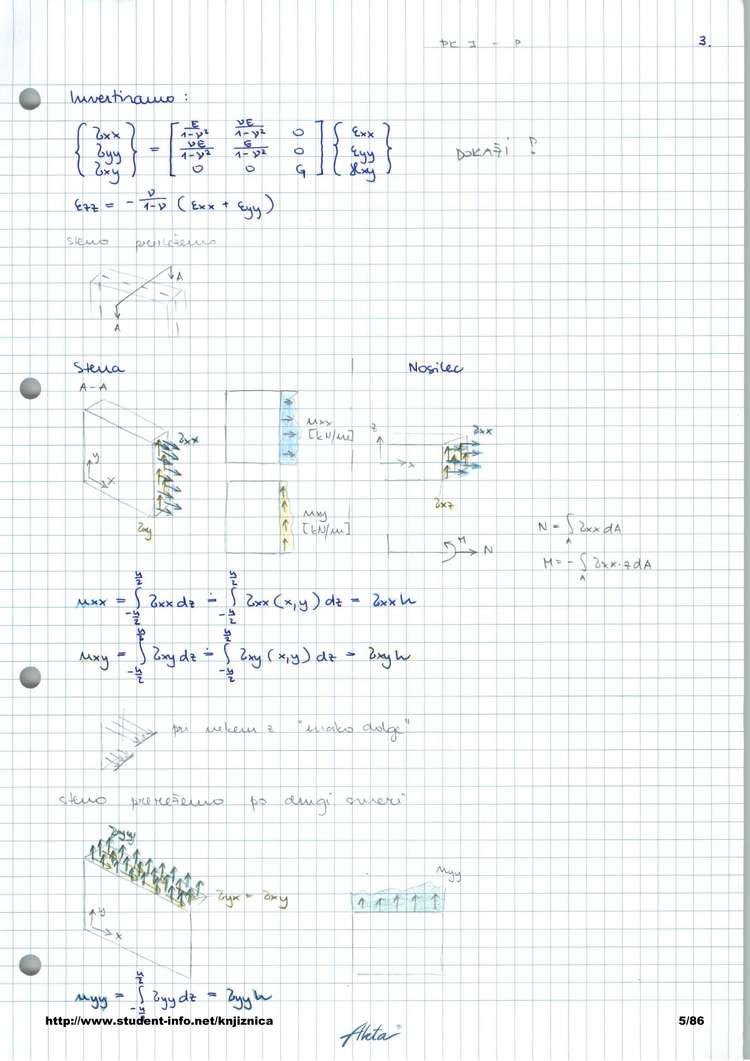 PK I - P
3.
Invertiramo :
{ σxx σyy σxy } = [ E/1-ν² νE/1-ν² 0 ; νE/1-ν² E/1-ν² 0 ; 0 0 G ] { εxx εyy γxy }
DOKAŽI !
εzz = - ν/1-ν ( εxx + εyy )
steno prerežemo
A
A
Stena
Nosilec
A-A
σxx
y
x
σxy
nxx
[kN/m]
nxy
[kN/m]
z
x
σxx
σxz
M
N
N = ∫A σxx dA
M = - ∫A σxx · z dA
nxx = ∫-h/2 h/2 σxx dz ≐ ∫-h/2 h/2 σxx (x,y) dz = σxx h
nxy = ∫-h/2 h/2 σxy dz ≐ ∫-h/2 h/2 σxy (x,y) dz = σxy h
pri nekem z "enako dolge"
steno prerežemo po drugi smeri
σyy
σyx = σxy
nyy
y
x
nyy = ∫-h/2 h/2 σyy dz = σyy h
http://www.student-info.net/knjiznica
5/86
Akta